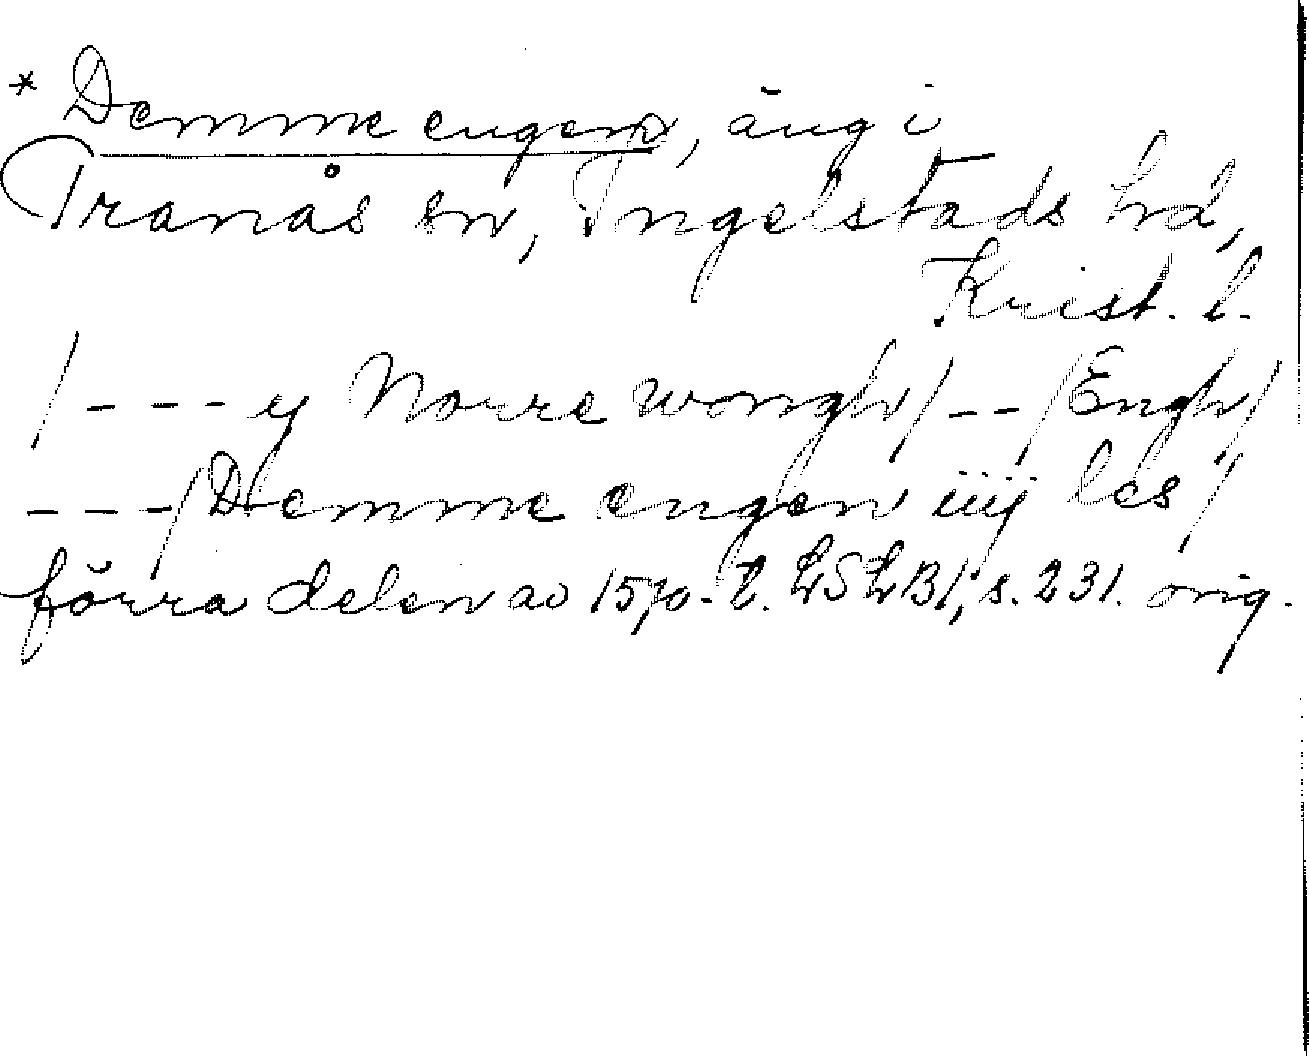 * Demme engen, äng i
Tranås sn, Ingelstads hd,
Krist. l.
/---y Norre wongh/--/Engh/
---/Demme engen iiij les/
förra delen av 1570-t. LSLB1, s. 231. orig.